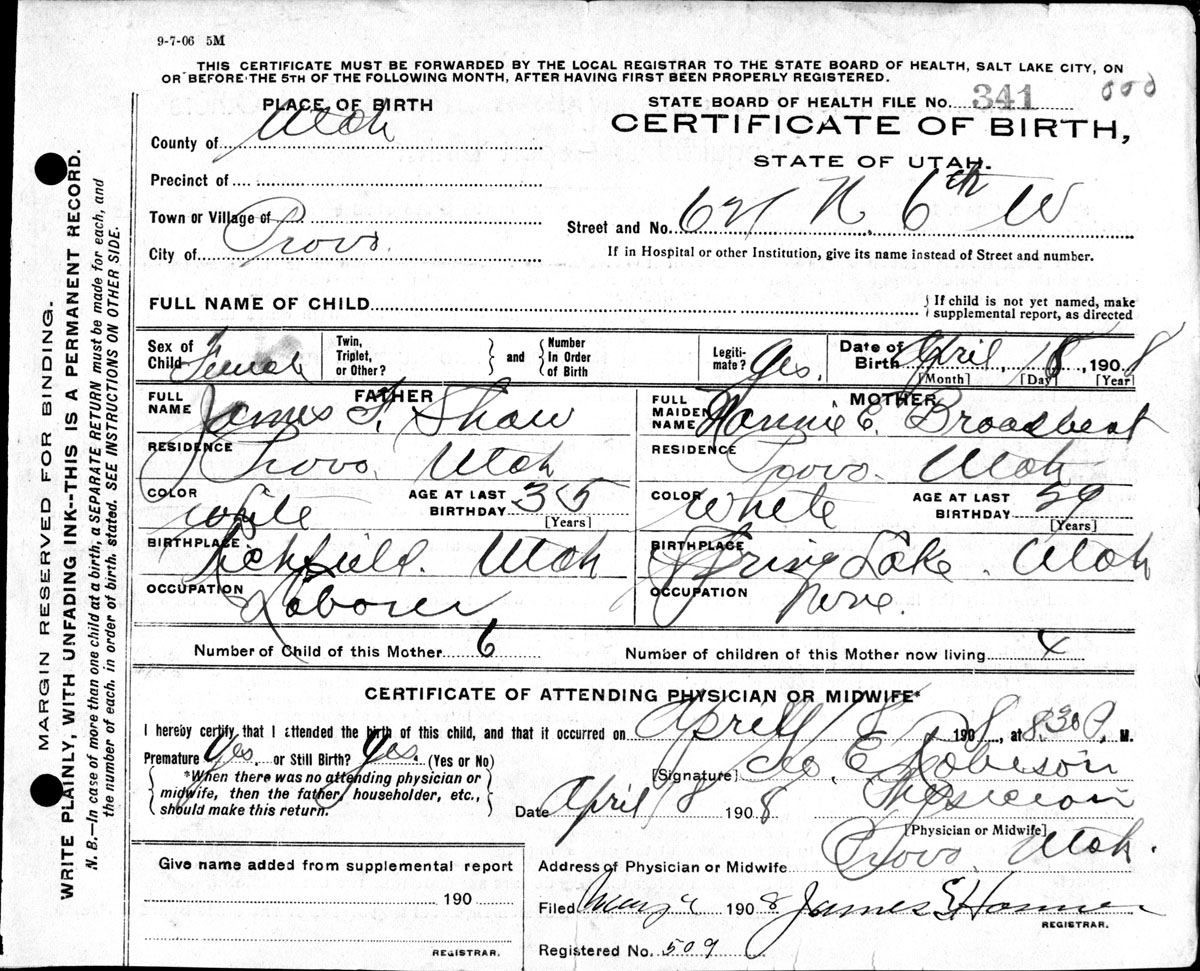 9-7-06 5M
THIS CERTIFICATE MUST BE FORWARDED BY THE LOCAL REGISTRAR TO THE STATE BOARD OF HEALTH, SALT LAKE CITY, ON
OR BEFORE THE 5TH OF THE FOLLOWING MONTH, AFTER HAVING FIRST BEEN PROPERLY REGISTERED.
PLACE OF BIRTH
County of Utah
Precinct of
Town or Village of
City of Provo.
STATE BOARD OF HEALTH FILE No. 341
CERTIFICATE OF BIRTH,
STATE OF UTAH.
Street and No. N. 6th W
If in Hospital or other Institution, give its name instead of Street and number.
FULL NAME OF CHILD
If child is not yet named, make
supplemental report, as directed
Sex of Child Female
Twin, Triplet, or Other?
and
Number In Order of Birth
Legitimate? Yes.
Date of Birth April, 18, 1908
[Month] [Day] [Year]
FATHER
FULL NAME James F. Shaw
RESIDENCE Provo. Utah
COLOR White
AGE AT LAST BIRTHDAY 35
[Years]
BIRTHPLACE Richfield. Utah
OCCUPATION Laborer
MOTHER
FULL MAIDEN NAME Nannie E. Broadbent
RESIDENCE Provo. Utah
COLOR White
AGE AT LAST BIRTHDAY 29
[Years]
BIRTHPLACE Spring Lake. Utah
OCCUPATION None.
Number of Child of this Mother 6
Number of children of this Mother now living 4
CERTIFICATE OF ATTENDING PHYSICIAN OR MIDWIFE*
I hereby certify that I attended the birth of this child, and that it occurred on April 18, 1908, at 8.30 P. M.
Premature Yes. or Still Birth? Yes. (Yes or No)
*When there was no attending physician or
midwife, then the father, householder, etc.,
should make this return.
[Signature] Geo. E. Robison
Date April 18 1908
Physician
[Physician or Midwife]
Address of Physician or Midwife Provo. Utah.
Give name added from supplemental report
190
REGISTRAR.
Filed 1908 James
REGISTRAR.
Registered No. 509
MARGIN RESERVED FOR BINDING.
WRITE PLAINLY, WITH UNFADING INK--THIS IS A PERMANENT RECORD.
N. B.—In case of more than one child at a birth, a SEPARATE RETURN must be made for each, and
the number of each, in order of birth, stated. SEE INSTRUCTIONS ON OTHER SIDE.